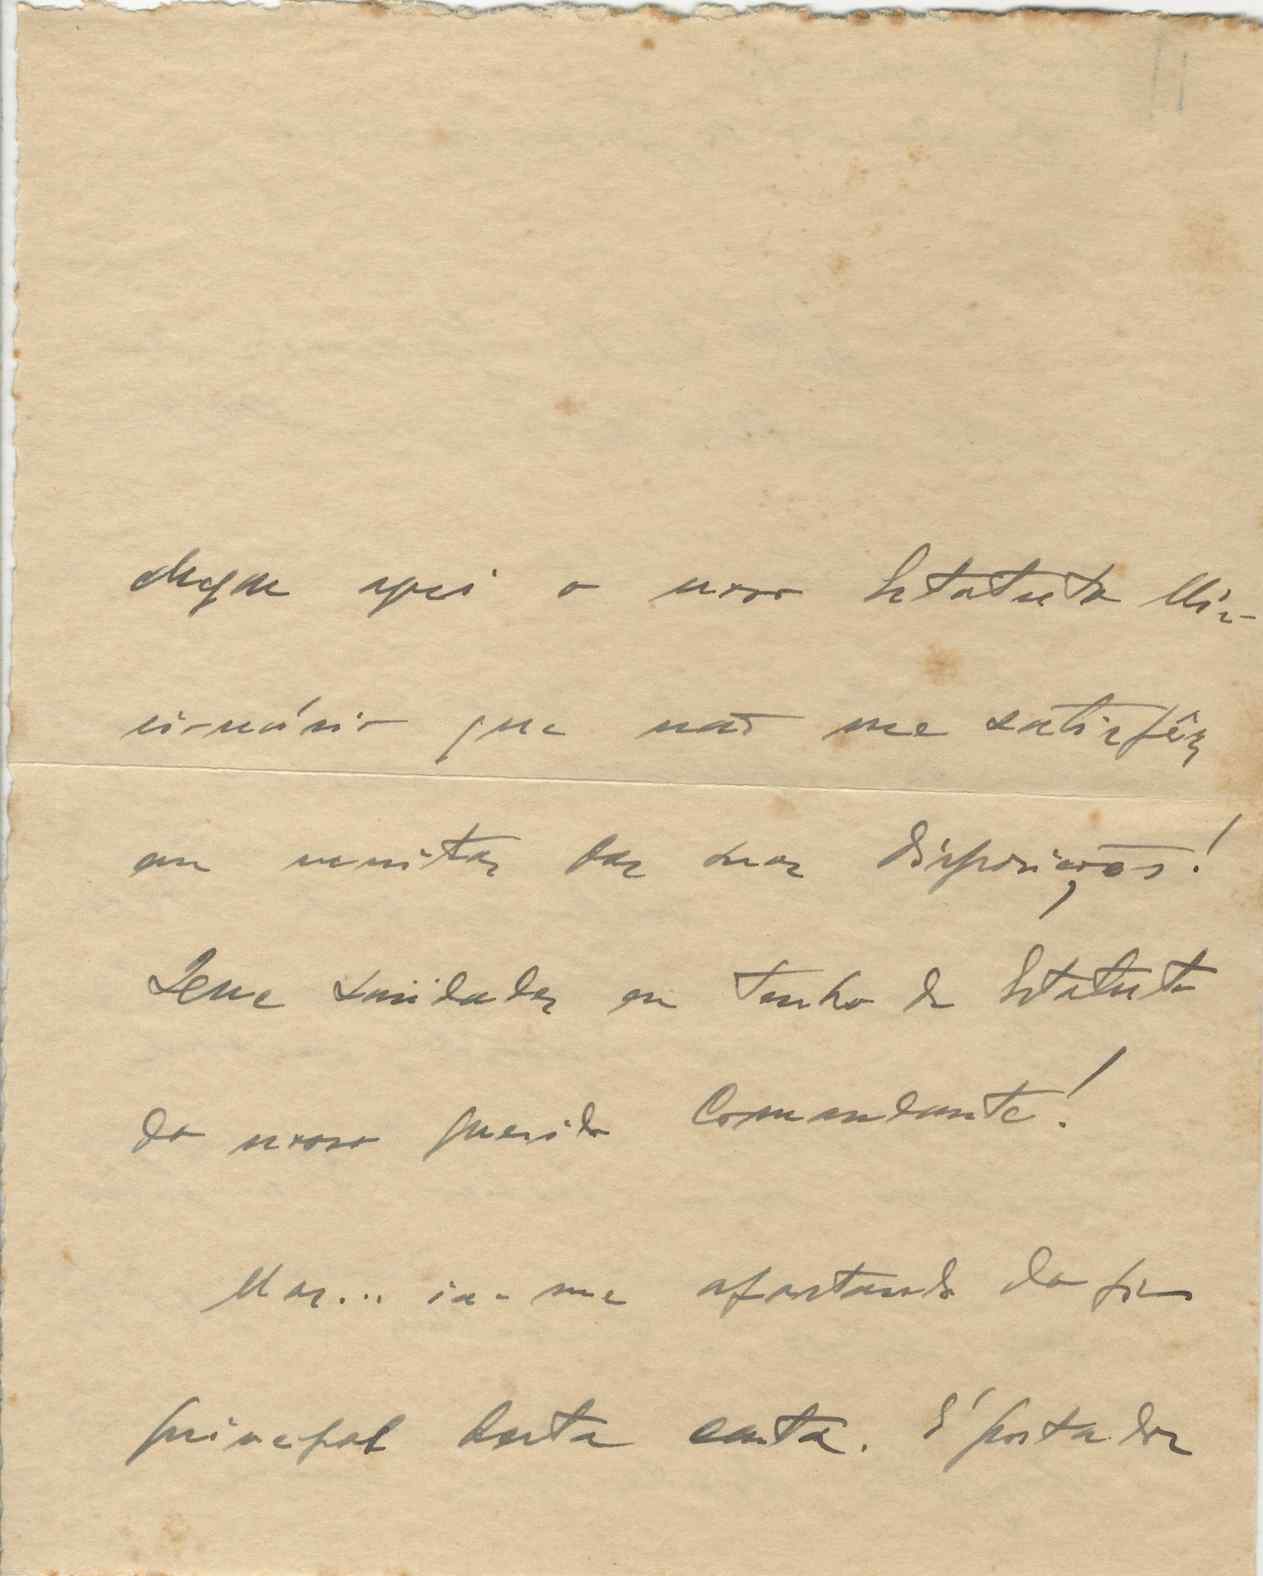 chegou aqui o novo Estatuto Mis-
sionário que não me satisfêz
em muitas das suas disposições!
Que saüdades eu tenho do Estatuto
do nosso querido Comandante!
Mas... ia-me afastando do fim
principal desta carta. É portador